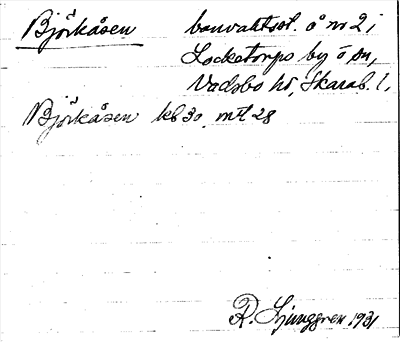 Björkåsen banvaktsst. å nr 2 i
Locketorps by ö sn,
Vadsbo hd, Skarab. l.
Björkåsen kb 30 mtl 28
R. Ljunggren 1931